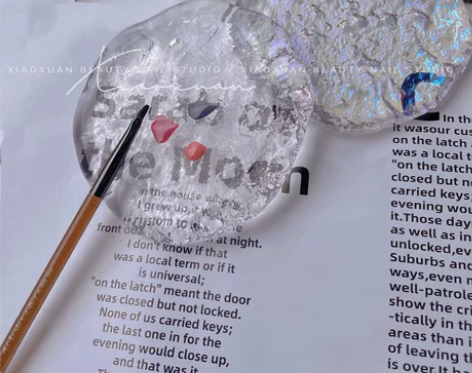 XIAOXUAN BEAUTY NAIL STUDIO
XIAOXUAN BEAUTY NAIL STUDIO
Xiaoxuan
Sarah on
the Moon
in the house where
I grew up, it was
custom to
front door at night.
I don't know if that
was a local term or if it
is universal;
"on the latch" meant the door
was closed but not locked.
None of us carried keys;
the last one in for the
evening would close up,
and that was it.
In the
it wasour cus
on the latch
was a local t
"on the latch
closed but n
carried keys;
evening wou
it.Those day
as well as in
unlocked,ev
Suburbs and
ways,even r
well-patrole
show the cri
-tically in th
areas than i
of leaving th
is over.It ha